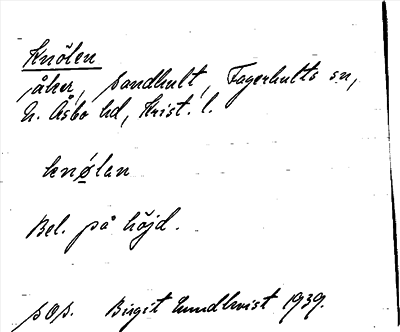 Knölen
åker, Sandhult, Fagerhults sn,
N. Åsbo hd, Krist. l.
knø̱lan
Bel. på höjd.
sOs. Birgit Lundkvist 1939.